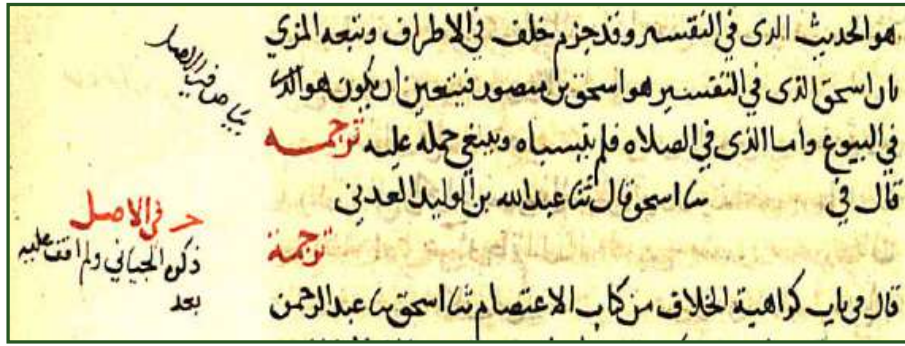 هو الحديث الذى في التفسير وقد جزم خلف في الاطراف وتبعه المزي
بان اسحق الذى في التفسير هو اسحق بن منصور فيتعين ان يكون هو الذى
في البيوع واما الذى في الصلاه فلم ينسباه وينبغي حمله عليه ترجمــه
قال في سا اسحق قال ثنا عبد الله بن الوليد العدني
ترجمة
قال في باب كراهية الخلاف من كتاب الاعتصام ثنا اسحق سا عبد الرحمن
بياض في الاصل
في الاصل
ذكره الجياني ولم اقف عليه
بعد